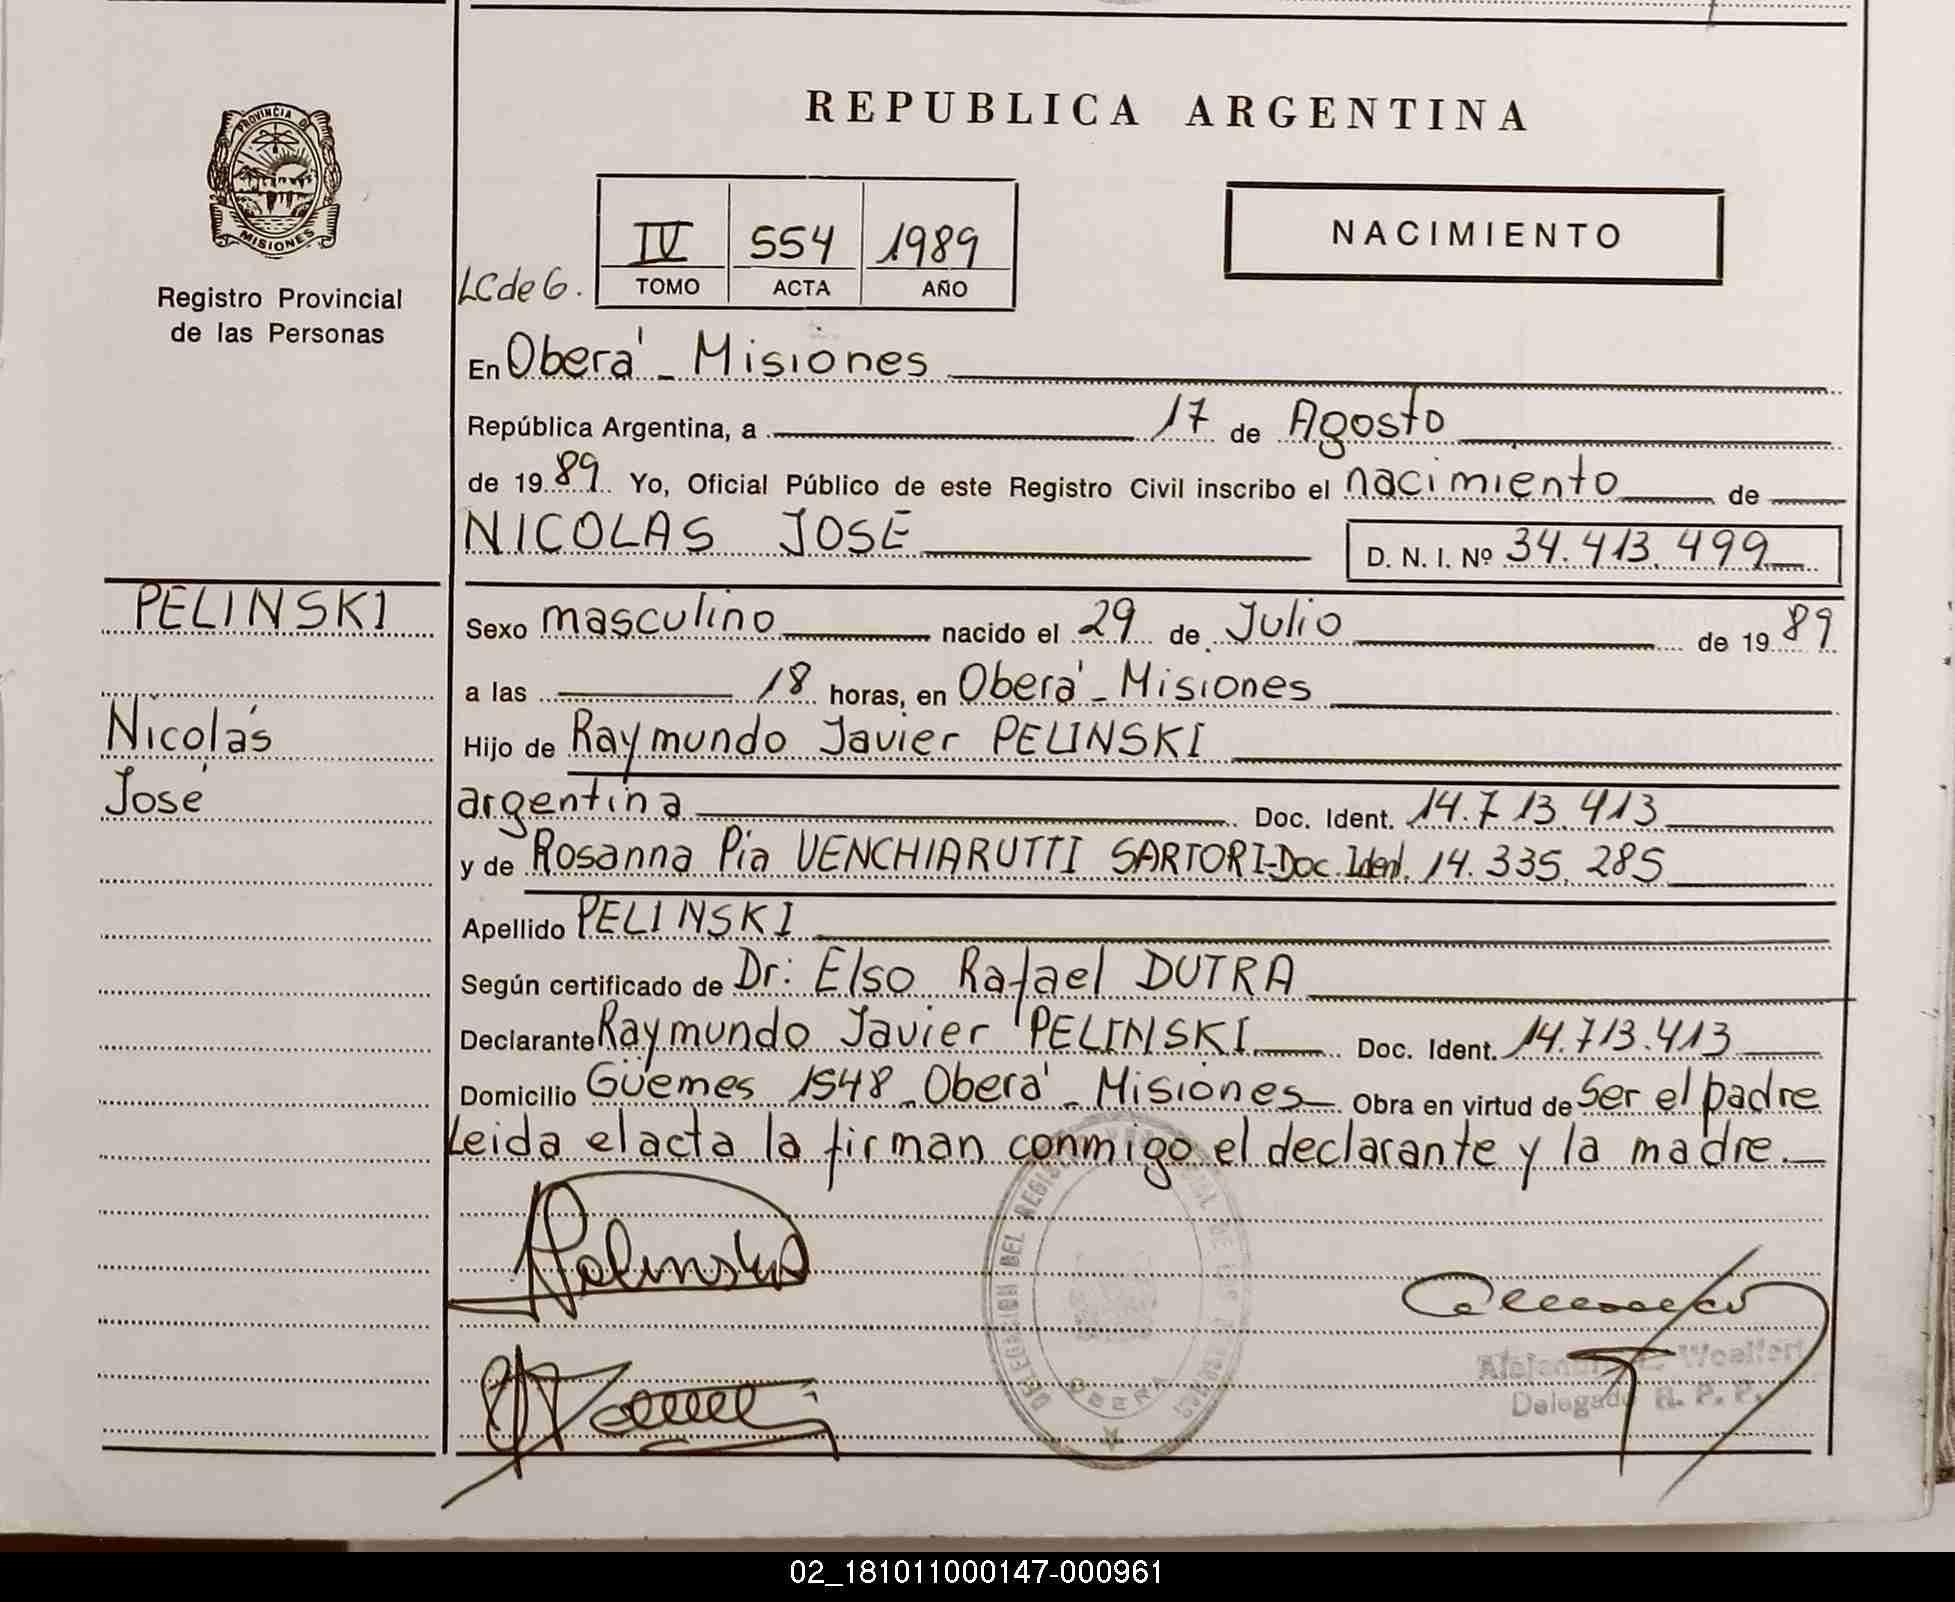 REPUBLICA ARGENTINA
PROVINCIA DE
MISIONES
Registro Provincial
de las Personas
LC de G.
IV 554 1989
TOMO ACTA AÑO
NACIMIENTO
En Oberá - Misiones
República Argentina, a 17 de Agosto
de 1989 Yo, Oficial Público de este Registro Civil inscribo el nacimiento de
NICOLAS JOSE D. N. I. Nº 34.413.499
PELINSKI
Nicolás
José
Sexo masculino nacido el 29 de Julio de 1989
a las 18 horas, en Oberá - Misiones
Hijo de Raymundo Javier PELINSKI
argentina Doc. Ident. 14.713.413
y de Rosanna Pia VENCHIARUTTI SARTORI-Doc. Ident. 14.335.285
Apellido PELINSKI
Según certificado de Dr: Elso Rafael DUTRA
Declarante Raymundo Javier PELINSKI Doc. Ident. 14.713.413
Domicilio Güemes 1548 - Oberá - Misiones Obra en virtud de ser el padre
Leida el acta la firman conmigo el declarante y la madre.
Pelinski
DELEGACION DEL
OBERA
Delegado R. P. P.
02_181011000147-000961